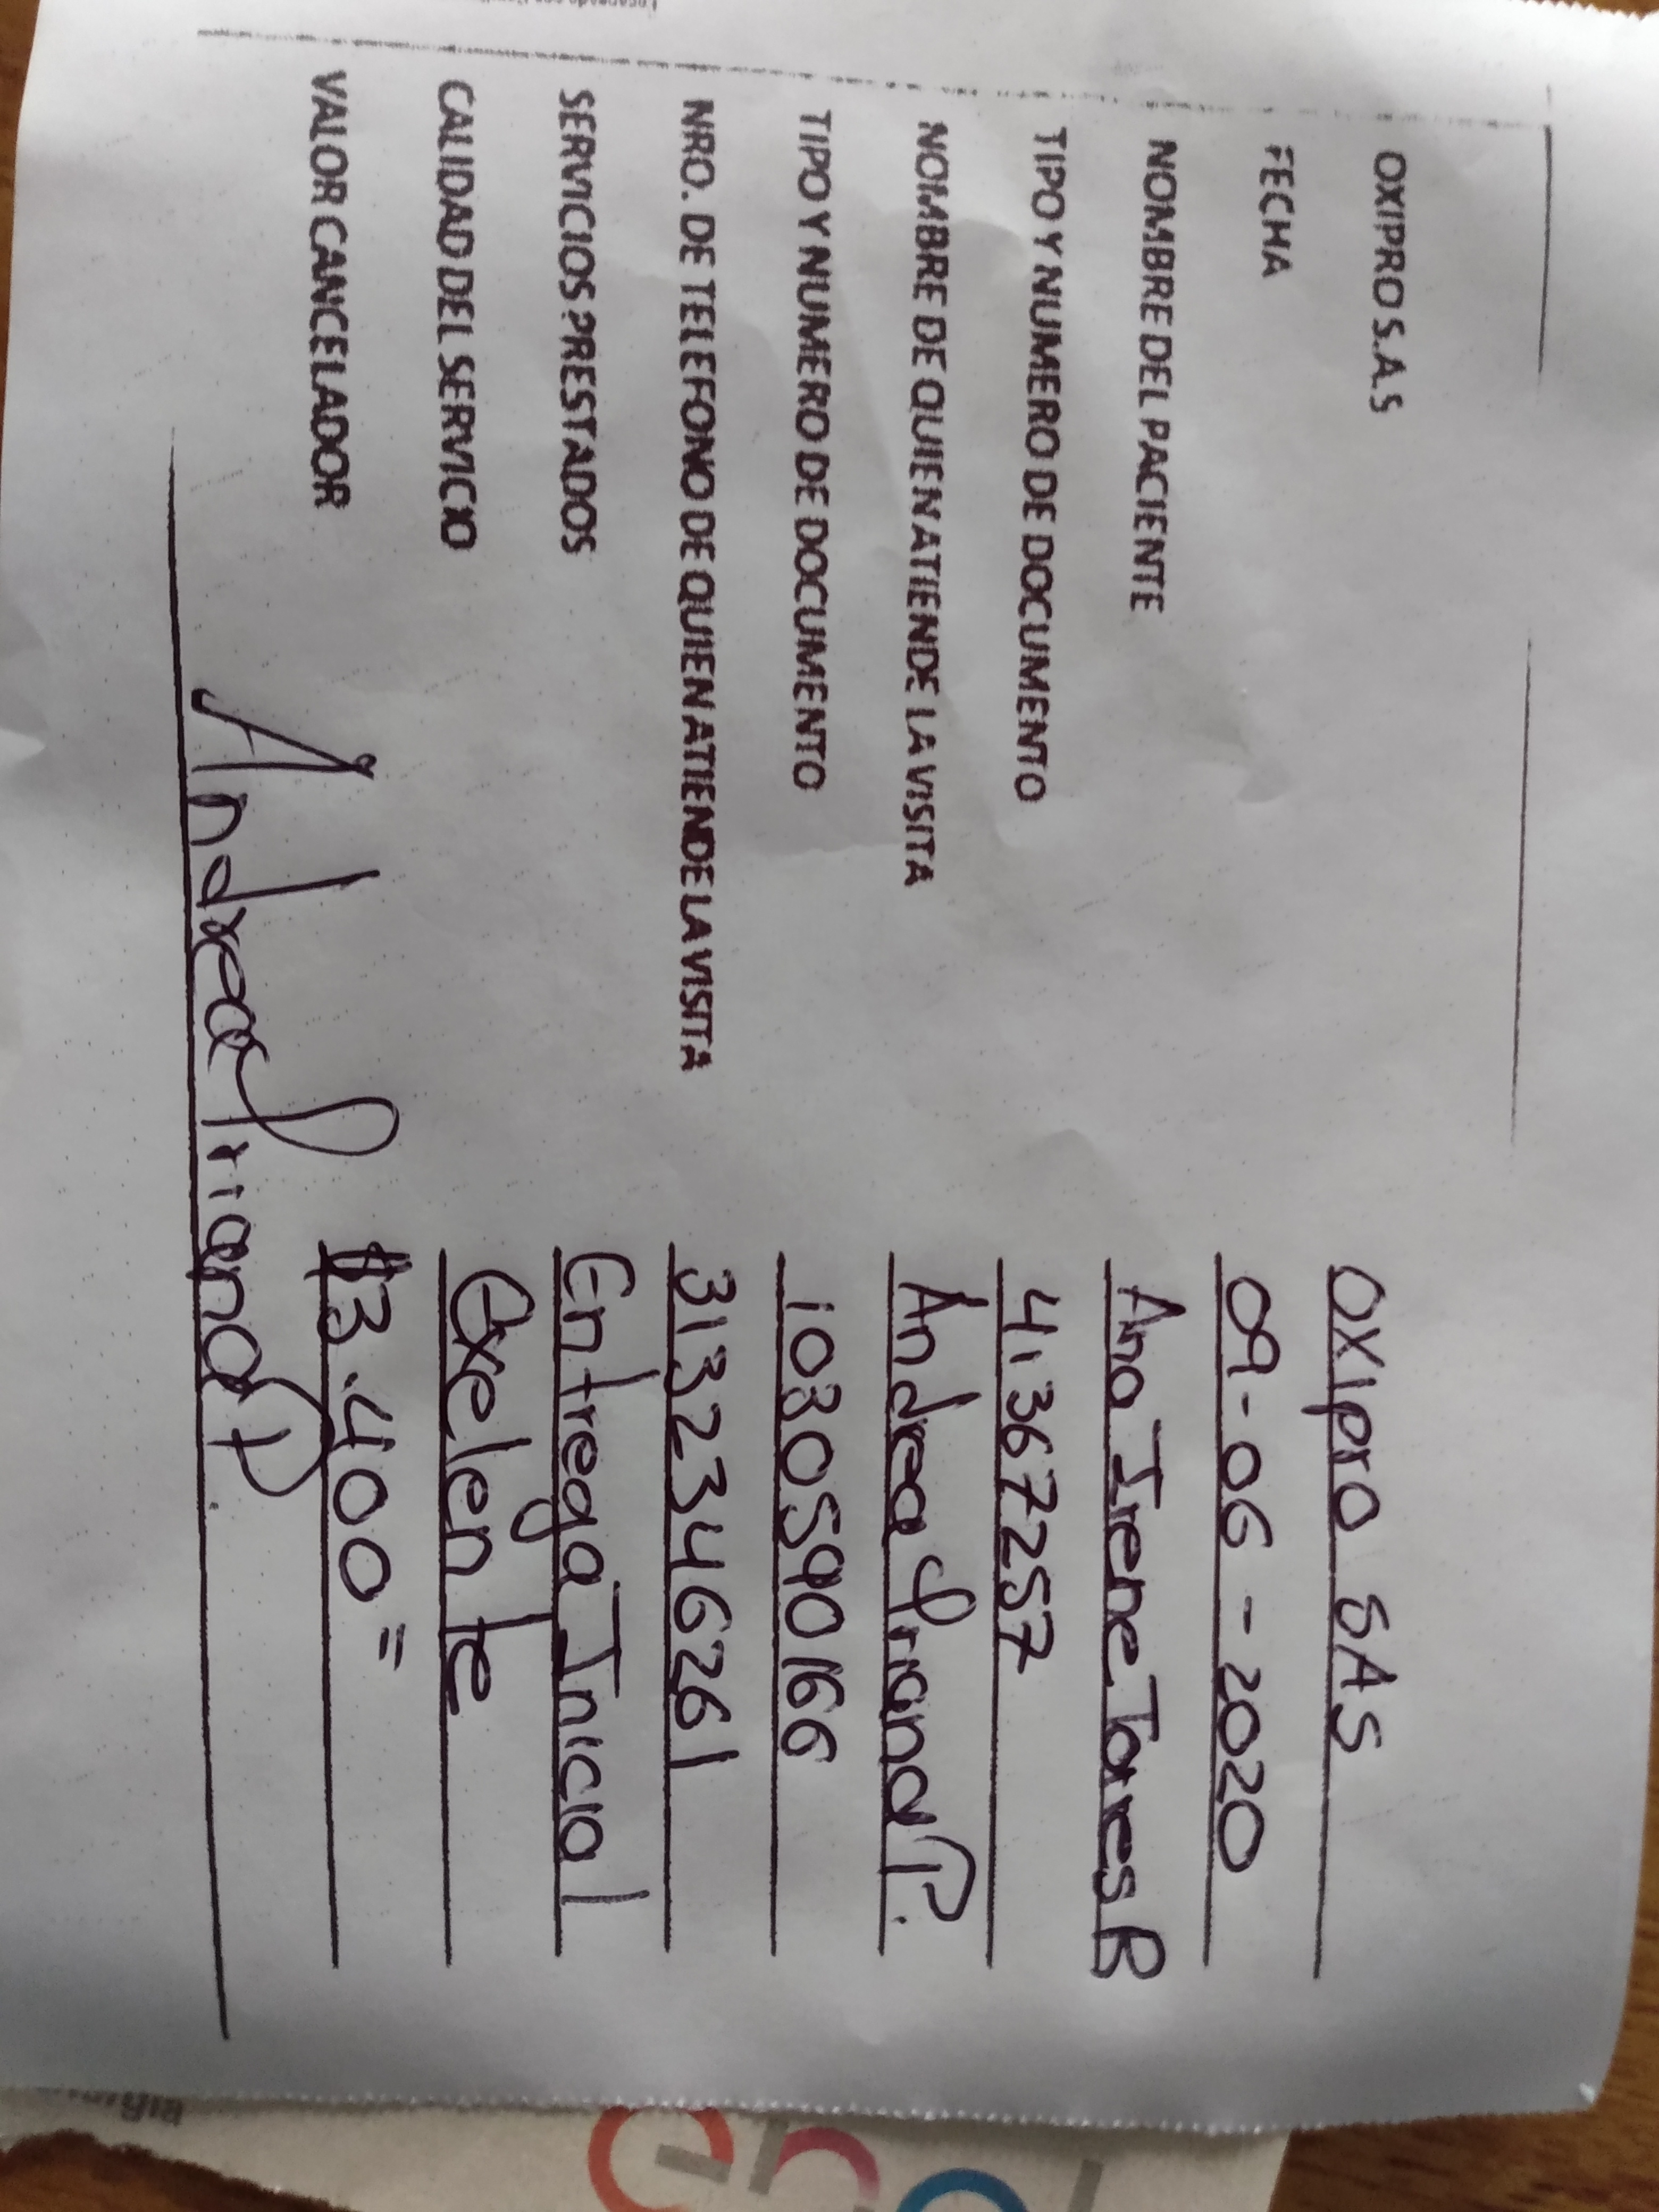 OXIPRO S.A.S OXIpro SAS
FECHA 09-06-2020
NOMBRE DEL PACIENTE Ana Irene Torres B
TIPO Y NUMERO DE DOCUMENTO 41367257
NOMBRE DE QUIEN ATIENDE LA VISITA Andrea Triana P.
TIPO Y NUMERO DE DOCUMENTO 1030590166
NRO. DE TELEFONO DE QUIEN ATIENDE LA VISITA 3132346261
SERVICIOS PRESTADOS Entrega Inicial
CALIDAD DEL SERVICIO Exelente
VALOR CANCELADOR $3.400=
Andrea Triana P.
enel